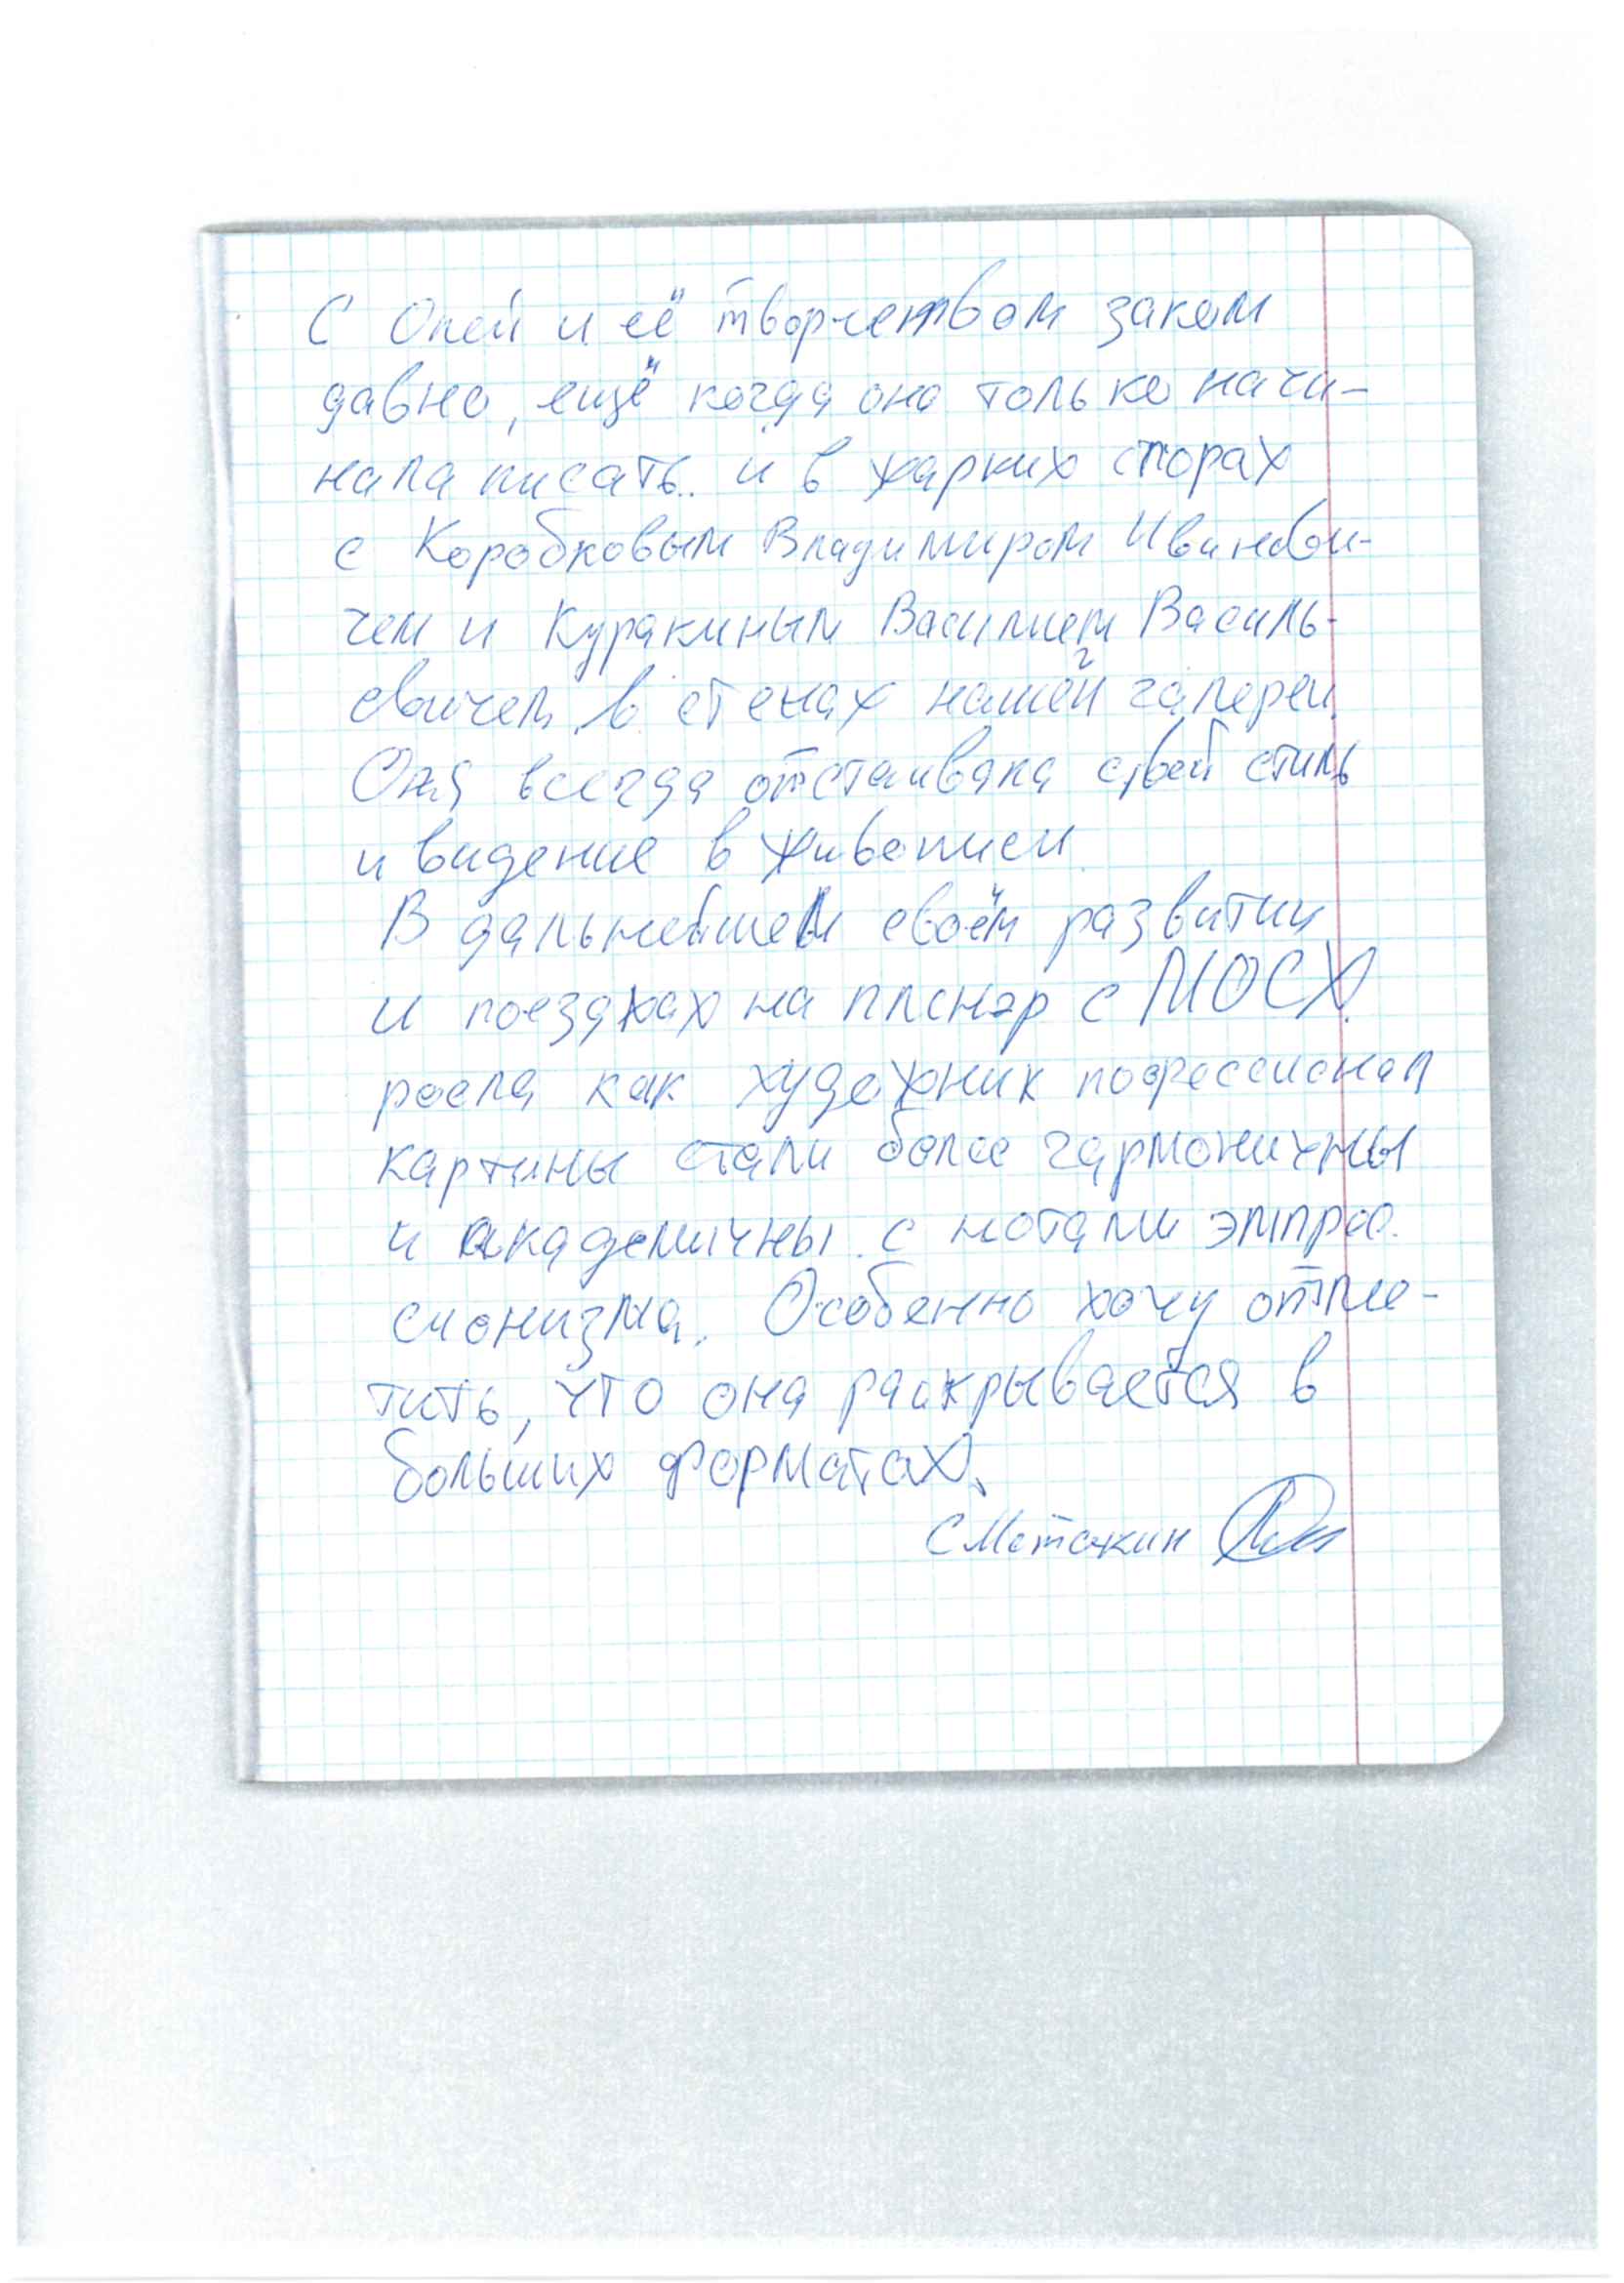 С Олей и её творчеством заком
давно, ещё когда она только начи-
нала писать. и в жарких спорах
с Коробковым Владимиром Иванови-
чем и Куракиным Василием Василь-
евичем в стенах нашей галереи.
Она всегда отстаивала свой стиль
и видение в живописи.
В дальнейшем своём развитии
и поездках на пленэр с МОСХ.
росла как художник пофессионал
картины стали более гармоничны
и академичны с нотами эмпрес.
сионизма. Особенно хочу отме-
тить, что она раскрывается в
больших форматах.